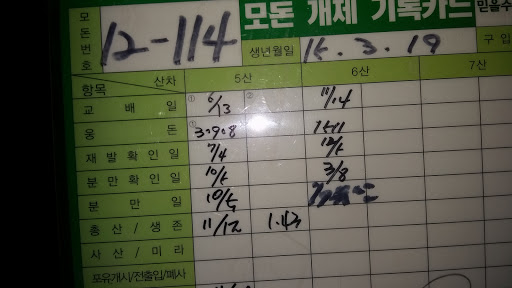 모돈 개체 기록카드 믿을수
모돈번호 12-114 생년월일 15.3.19 구입
산차 5산 6산 7산
항목
교배일 ① 6/13 ② 11/14
웅돈 ① 3.9.8
재발확인일 7/4 12/5
분만확인일 10/5 3/8
분만일 10/5
총산/생존 11/12 1.43
사산/미라
포유개시/전출입/폐사